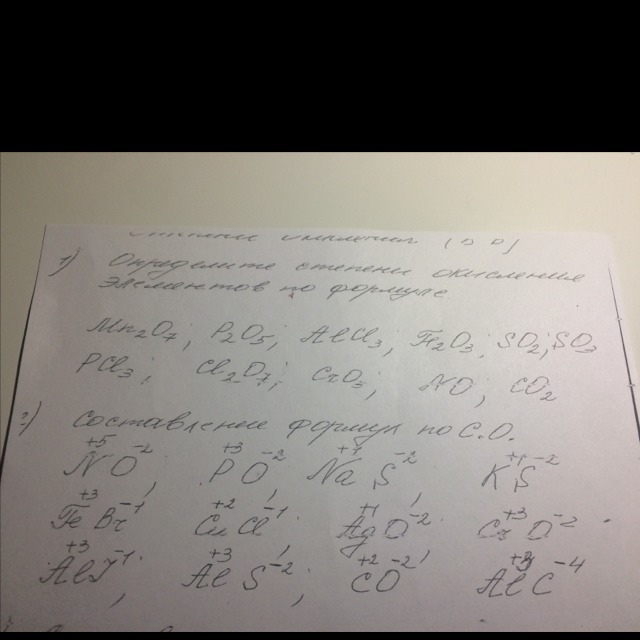 степени окисления
1) Определите степени окисления
элементов по формуле
Mn₂O₇; P₂O₅; AlCl₃; Fe₂O₃; SO₂; SO₃
PCl₃; Cl₂O₇; CrO₃; NO; CO₂
2) Составление формул по С.О.
N⁺⁵O⁻², P⁺³O⁻², Na⁺¹S⁻², K⁺¹S⁻²
Fe⁺³Br⁻¹, Cu⁺²Cl⁻¹, Ag⁺¹O⁻², Cr⁺³O⁻²
Al⁺³J⁻¹, Al⁺³S⁻², C⁺²O⁻², Al⁺³C⁻⁴